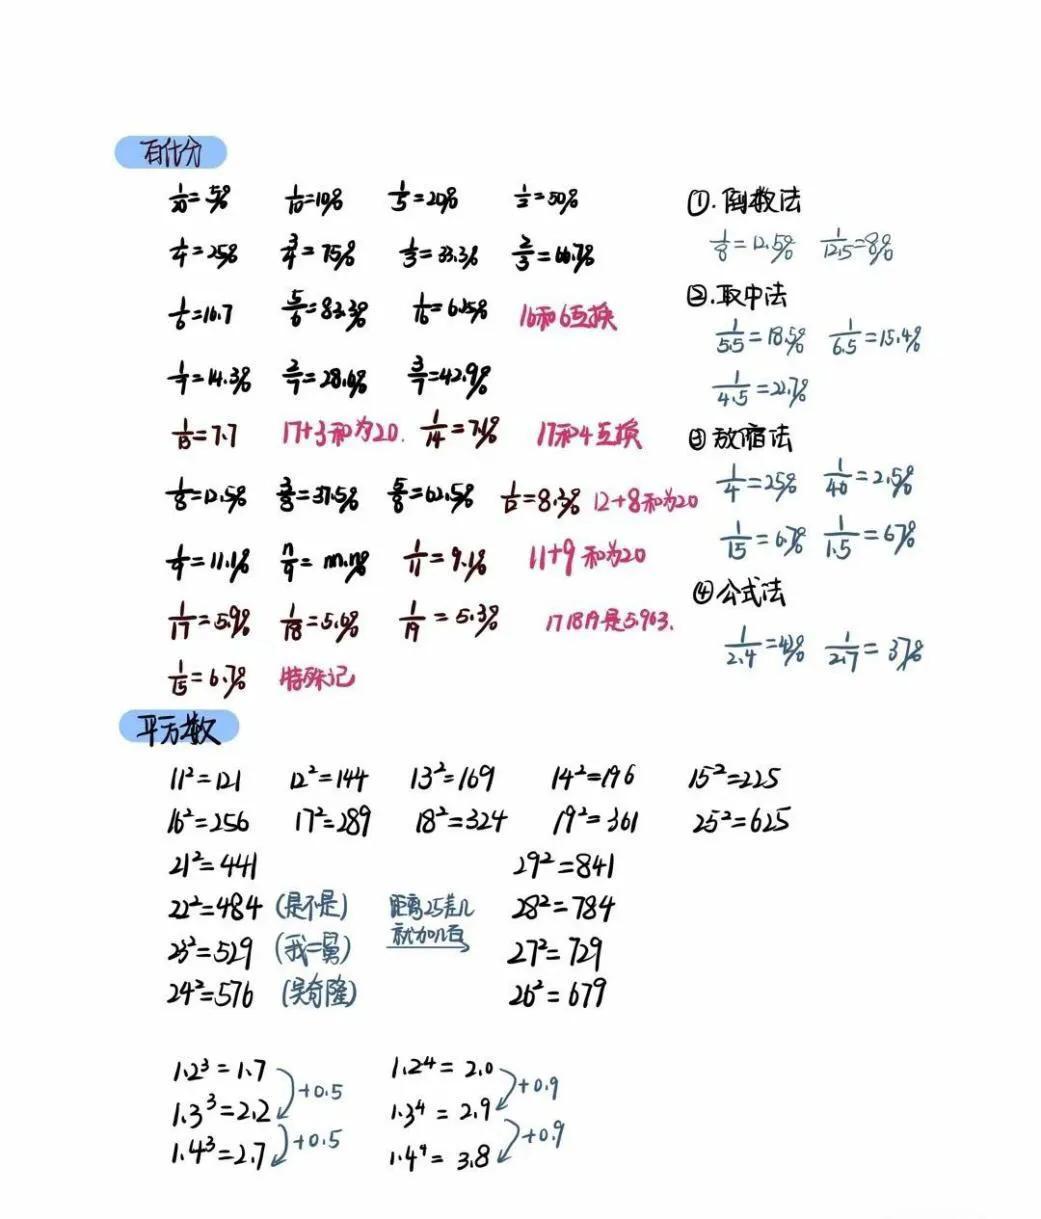 百化分
1/20=5% 1/10=10% 1/5=20% 1/2=50%
1/4=25% 3/4=75% 1/3=33.3% 2/3=66.7%
1/6=16.7 5/6=83.3% 1/16=6.25% 16和6互换
1/7=14.3% 2/7=28.6% 3/7=42.9%
1/13=7.7 17+3和为20. 1/14=7.1% 17和4互换
1/8=12.5% 3/8=37.5% 5/8=62.5% 1/12=8.3% 12+8和为20
1/9=11.1% n/9=nn.n% 1/11=9.1% 11+9和为20
1/17=5.9% 1/18=5.6% 1/19=5.3% 17 18 19是5.963.
1/15=6.7% 特殊记
①.倒数法
1/8=12.5% 1/12.5=8%
②.取中法
1/5.5=18.5% 1/6.5=15.4%
1/4.5=22.7%
③放缩法
1/4=25% 1/40=2.5%
1/15=6.7% 1/1.5=67%
④公式法
1/2.4=42% 1/2.7=37%
平方数
11²=121 12²=144 13²=169 14²=196 15²=225
16²=256 17²=289 18²=324 19²=361 25²=625
21²=441 29²=841
22²=484 (是不是) 28²=784
23²=529 (我二舅) 27²=729
24²=576 (吴奇隆) 26²=679
距离25差几
就加几百
1.2³=1.7 1.2⁴=2.0
+0.5 +0.9
1.3³=2.2 1.3⁴=2.9
+0.5 +0.9
1.4³=2.7 1.4⁴=3.8